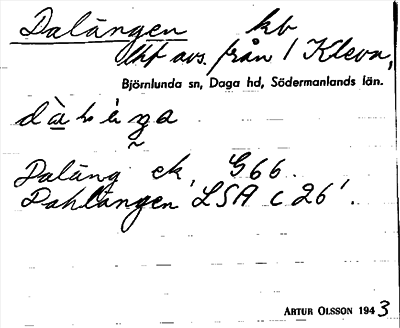 Dalängen kb
lht avs. från 1 Kleva,
Björnlunda sn, Daga hd, Södermanlands län.
Daläng ek. G66.
Dahlängen LSA C 26¹.
ARTUR OLSSON 1943